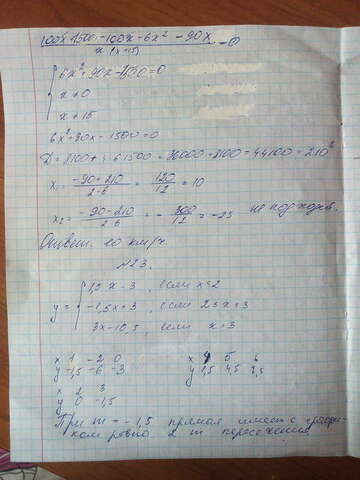 100x+1500-100x-6x²-90x = 0
x(x+15)
6x²+90x-1500=0
x≠0
x≠15
6x²+90x-1500=0
D=8100+4·6·1500=36000+8100=44100=210²
x₁= -90+210 / 2·6 = 120 / 12 = 10
x₂= -90-210 / 2·6 = - 300 / 12 = -25 не подходит.
Ответ. 10 км/ч.
№23.
1,5x-3, если x<2
y= -1,5x+3, если 2≤x≤3
3x-10,5, если x>3
x 1 -2 0 x 4 5 6
y -1,5 -6 -3 y 1,5 4,5 7,5
x 2 3
y 0 -1,5
При m=-1,5 прямая имеет с графи-
ком ровно 2 т пересечения